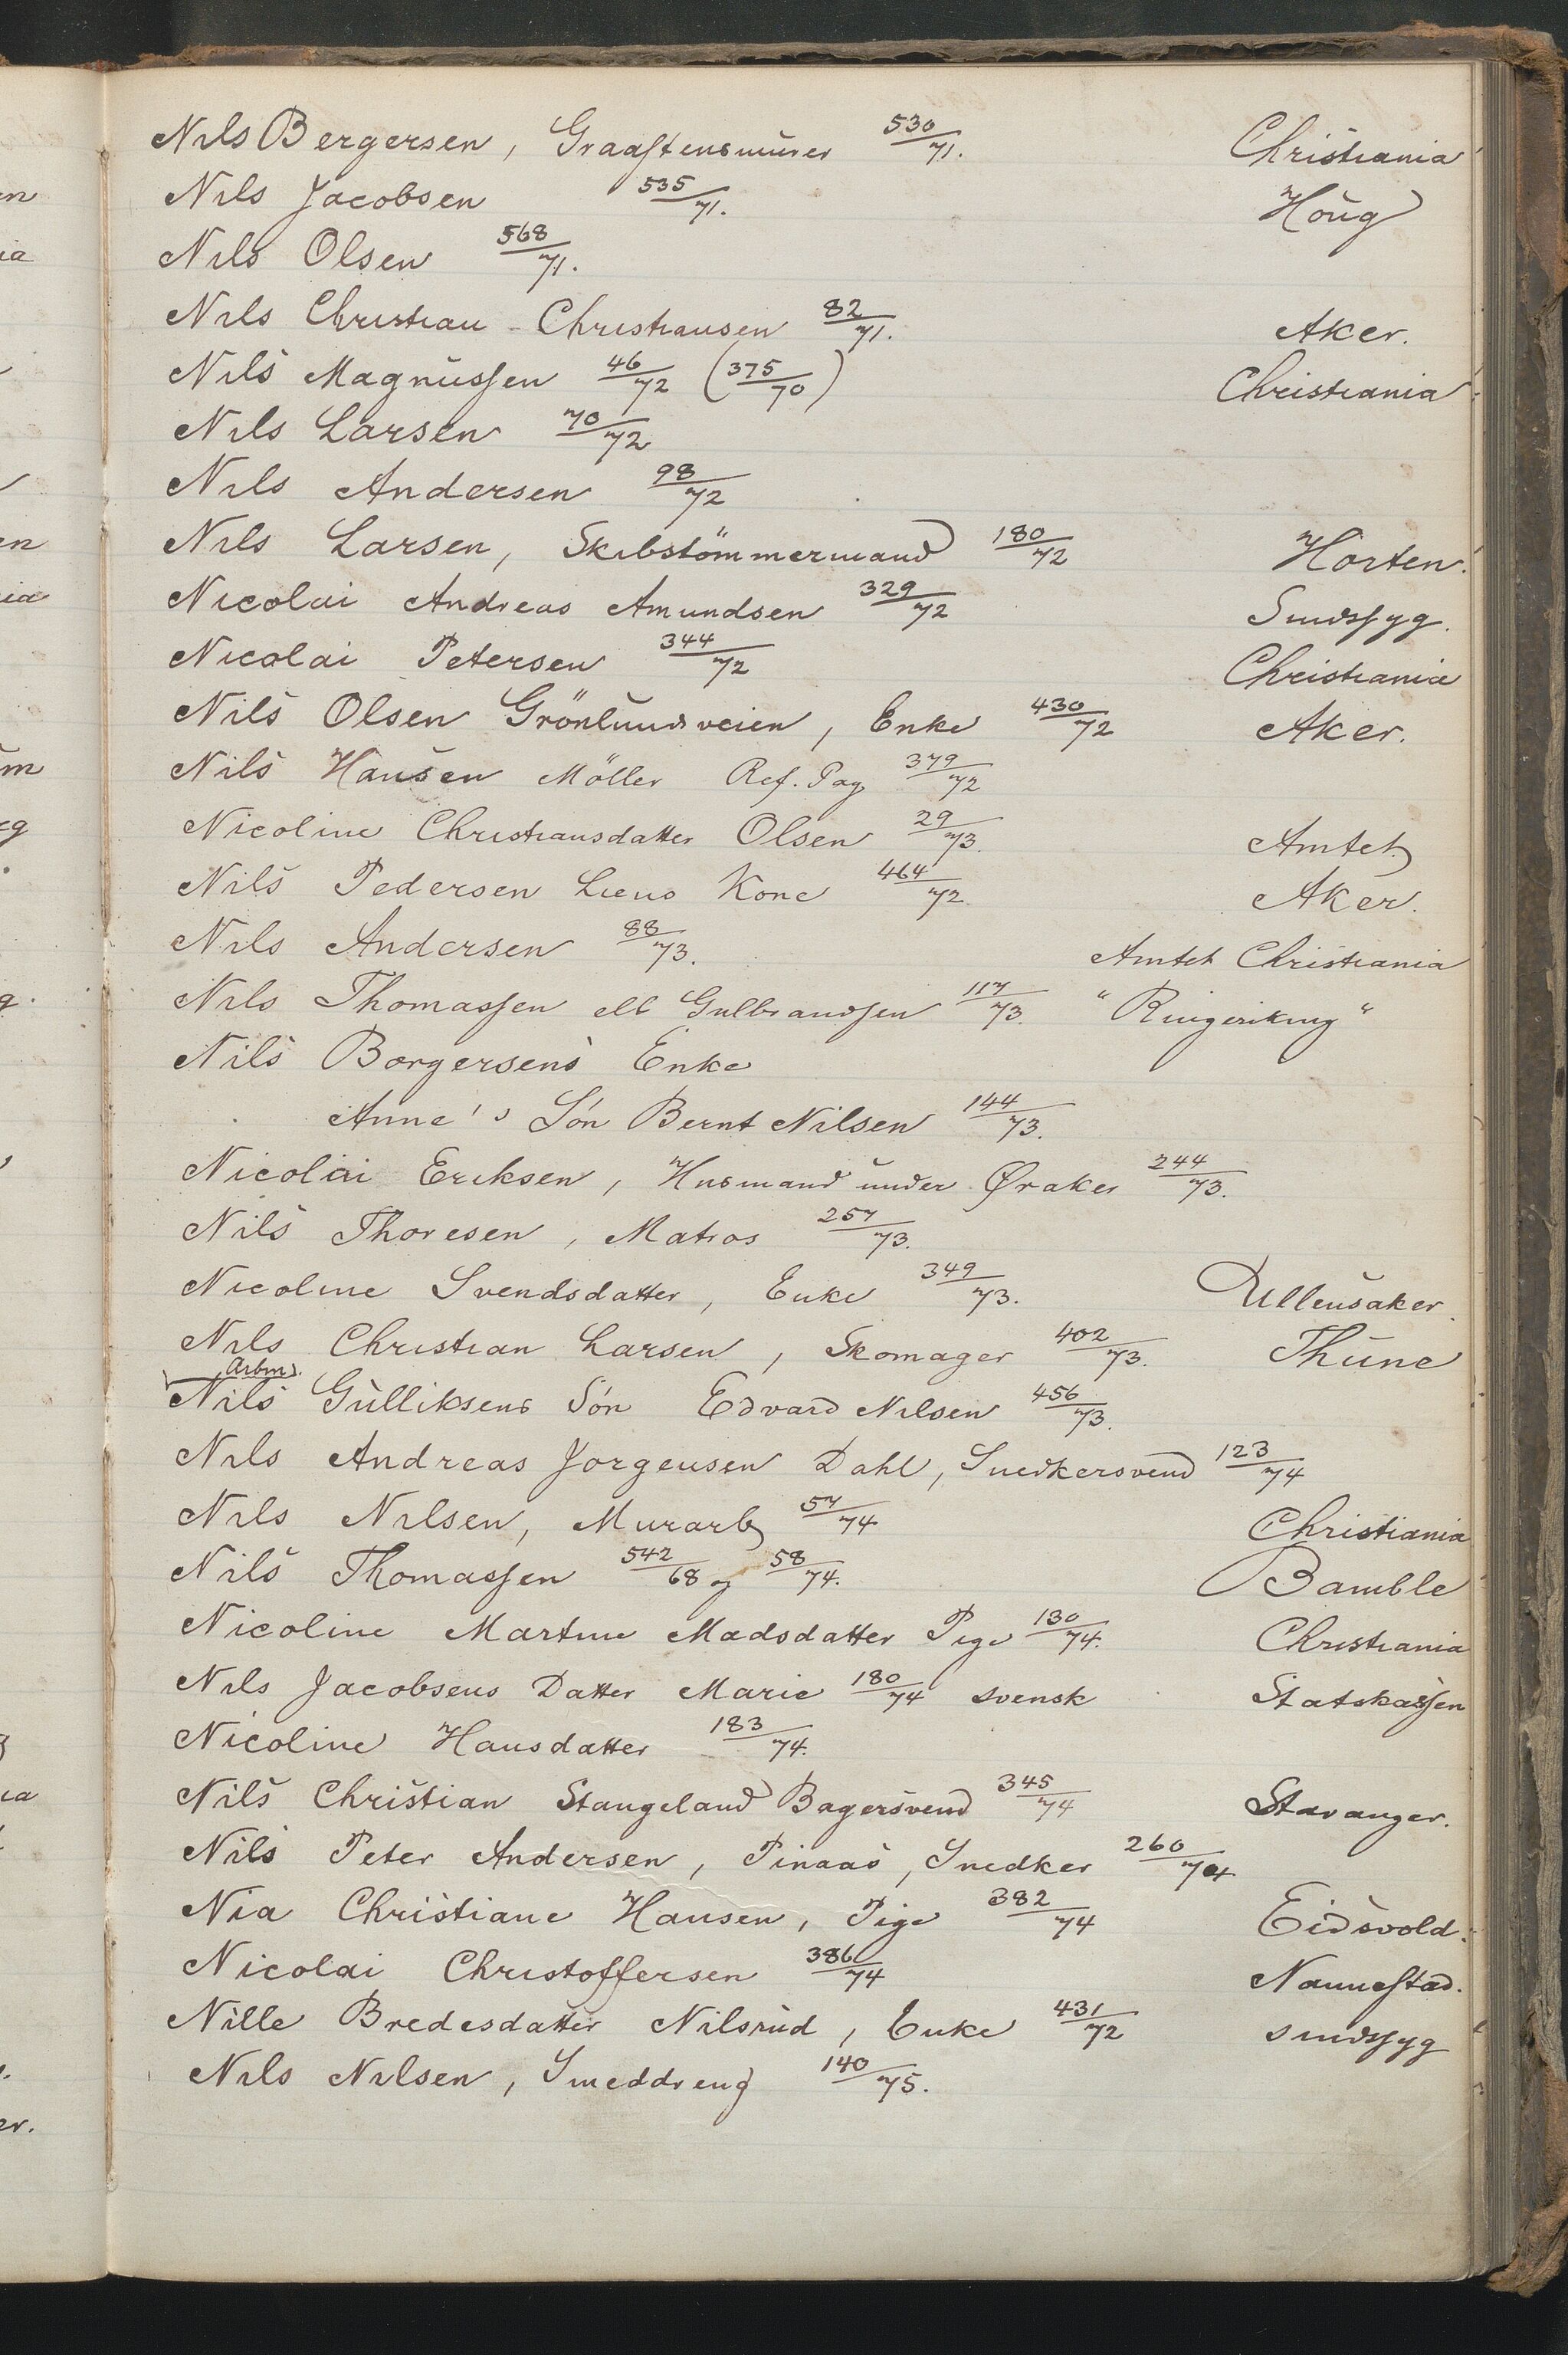 Nils Bergersen, Graastensmurer 530/71. Christiania
Nils Jacobsen 535/71. Houg
Nils Olsen 568/71.
Nils Christian Christiansen 82/71. Aker.
Nils Magnussen 46/72 (375/70) Christiania
Nils Larsen 70/72
Nils Andersen 98/72
Nils Larsen, Skibstömmermand 180/72 Horten.
Nicolai Andreas Amundsen 329/72 Sindssyg.
Nicolai Petersen 344/72 Christiania
Nils Olsen Grönlundsveien, Enke 430/72 Aker.
Nils Hansen Möller Ref. Pag 379/72
Nicoline Christiansdatter Olsen 29/73. Amtet
Nils Pedersen Liens Kone 464/72. Aker.
Nils Andersen 88/73. Amtet Christiania
Nils Thomassen ell Gulbrandsen 117/73. "Ringeriking"
Nils Borgersens Enke
Anne's Sön Bernt Nilsen 144/73.
Nicolai Eriksen, Husmand under Øraker 244/73.
Nils Thoresen, Matros 257/73.
Nicoline Svendsdatter, Enke 349/73. Ullensaker.
Nils Christian Larsen, Skomager 402/73. Thune
Arbmd.
Nils Gulliksens Sön Edvard Nilsen 456/73.
Nils Andreas Jorgensen Dahl, Snedkersvend 123/74
Nils Nilsen, Murarb 57/74 Christiania
Nils Thomassen 542/68 og 58/74. Bamble
Nicoline Martine Madsdatter Pige 130/74. Christiania
Nils Jacobsens Datter Marie 180/74 svensk Statskassen
Nicoline Hansdatter 183/74.
Nils Christian Stangeland Bagersvend 345/74 Stavanger.
Nils Peter Andersen, Pinaas, Snedker 260/74
Nia Christiane Hansen, Pige 382/74 Eidsvold.
Nicolai Christoffersen 386/74 Nannestad.
Nille Bredesdatter Nilsrud, Enke 431/72 sindssyg
Nils Nilsen, Smeddreng 140/75.